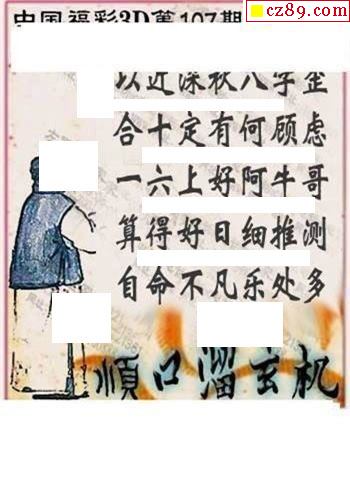 cz89.com
中国福彩3D第107期
以近深秋八字歪
合十定有何顾虑
一六上好阿牛哥
算得好日细推测
自命不凡乐处多
顺口溜玄机